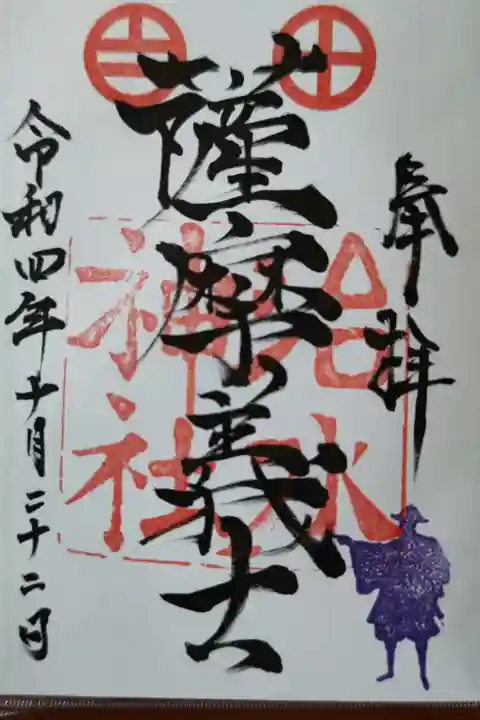 奉拝
薩摩義士
治水
神社
令和四年十月二十二日